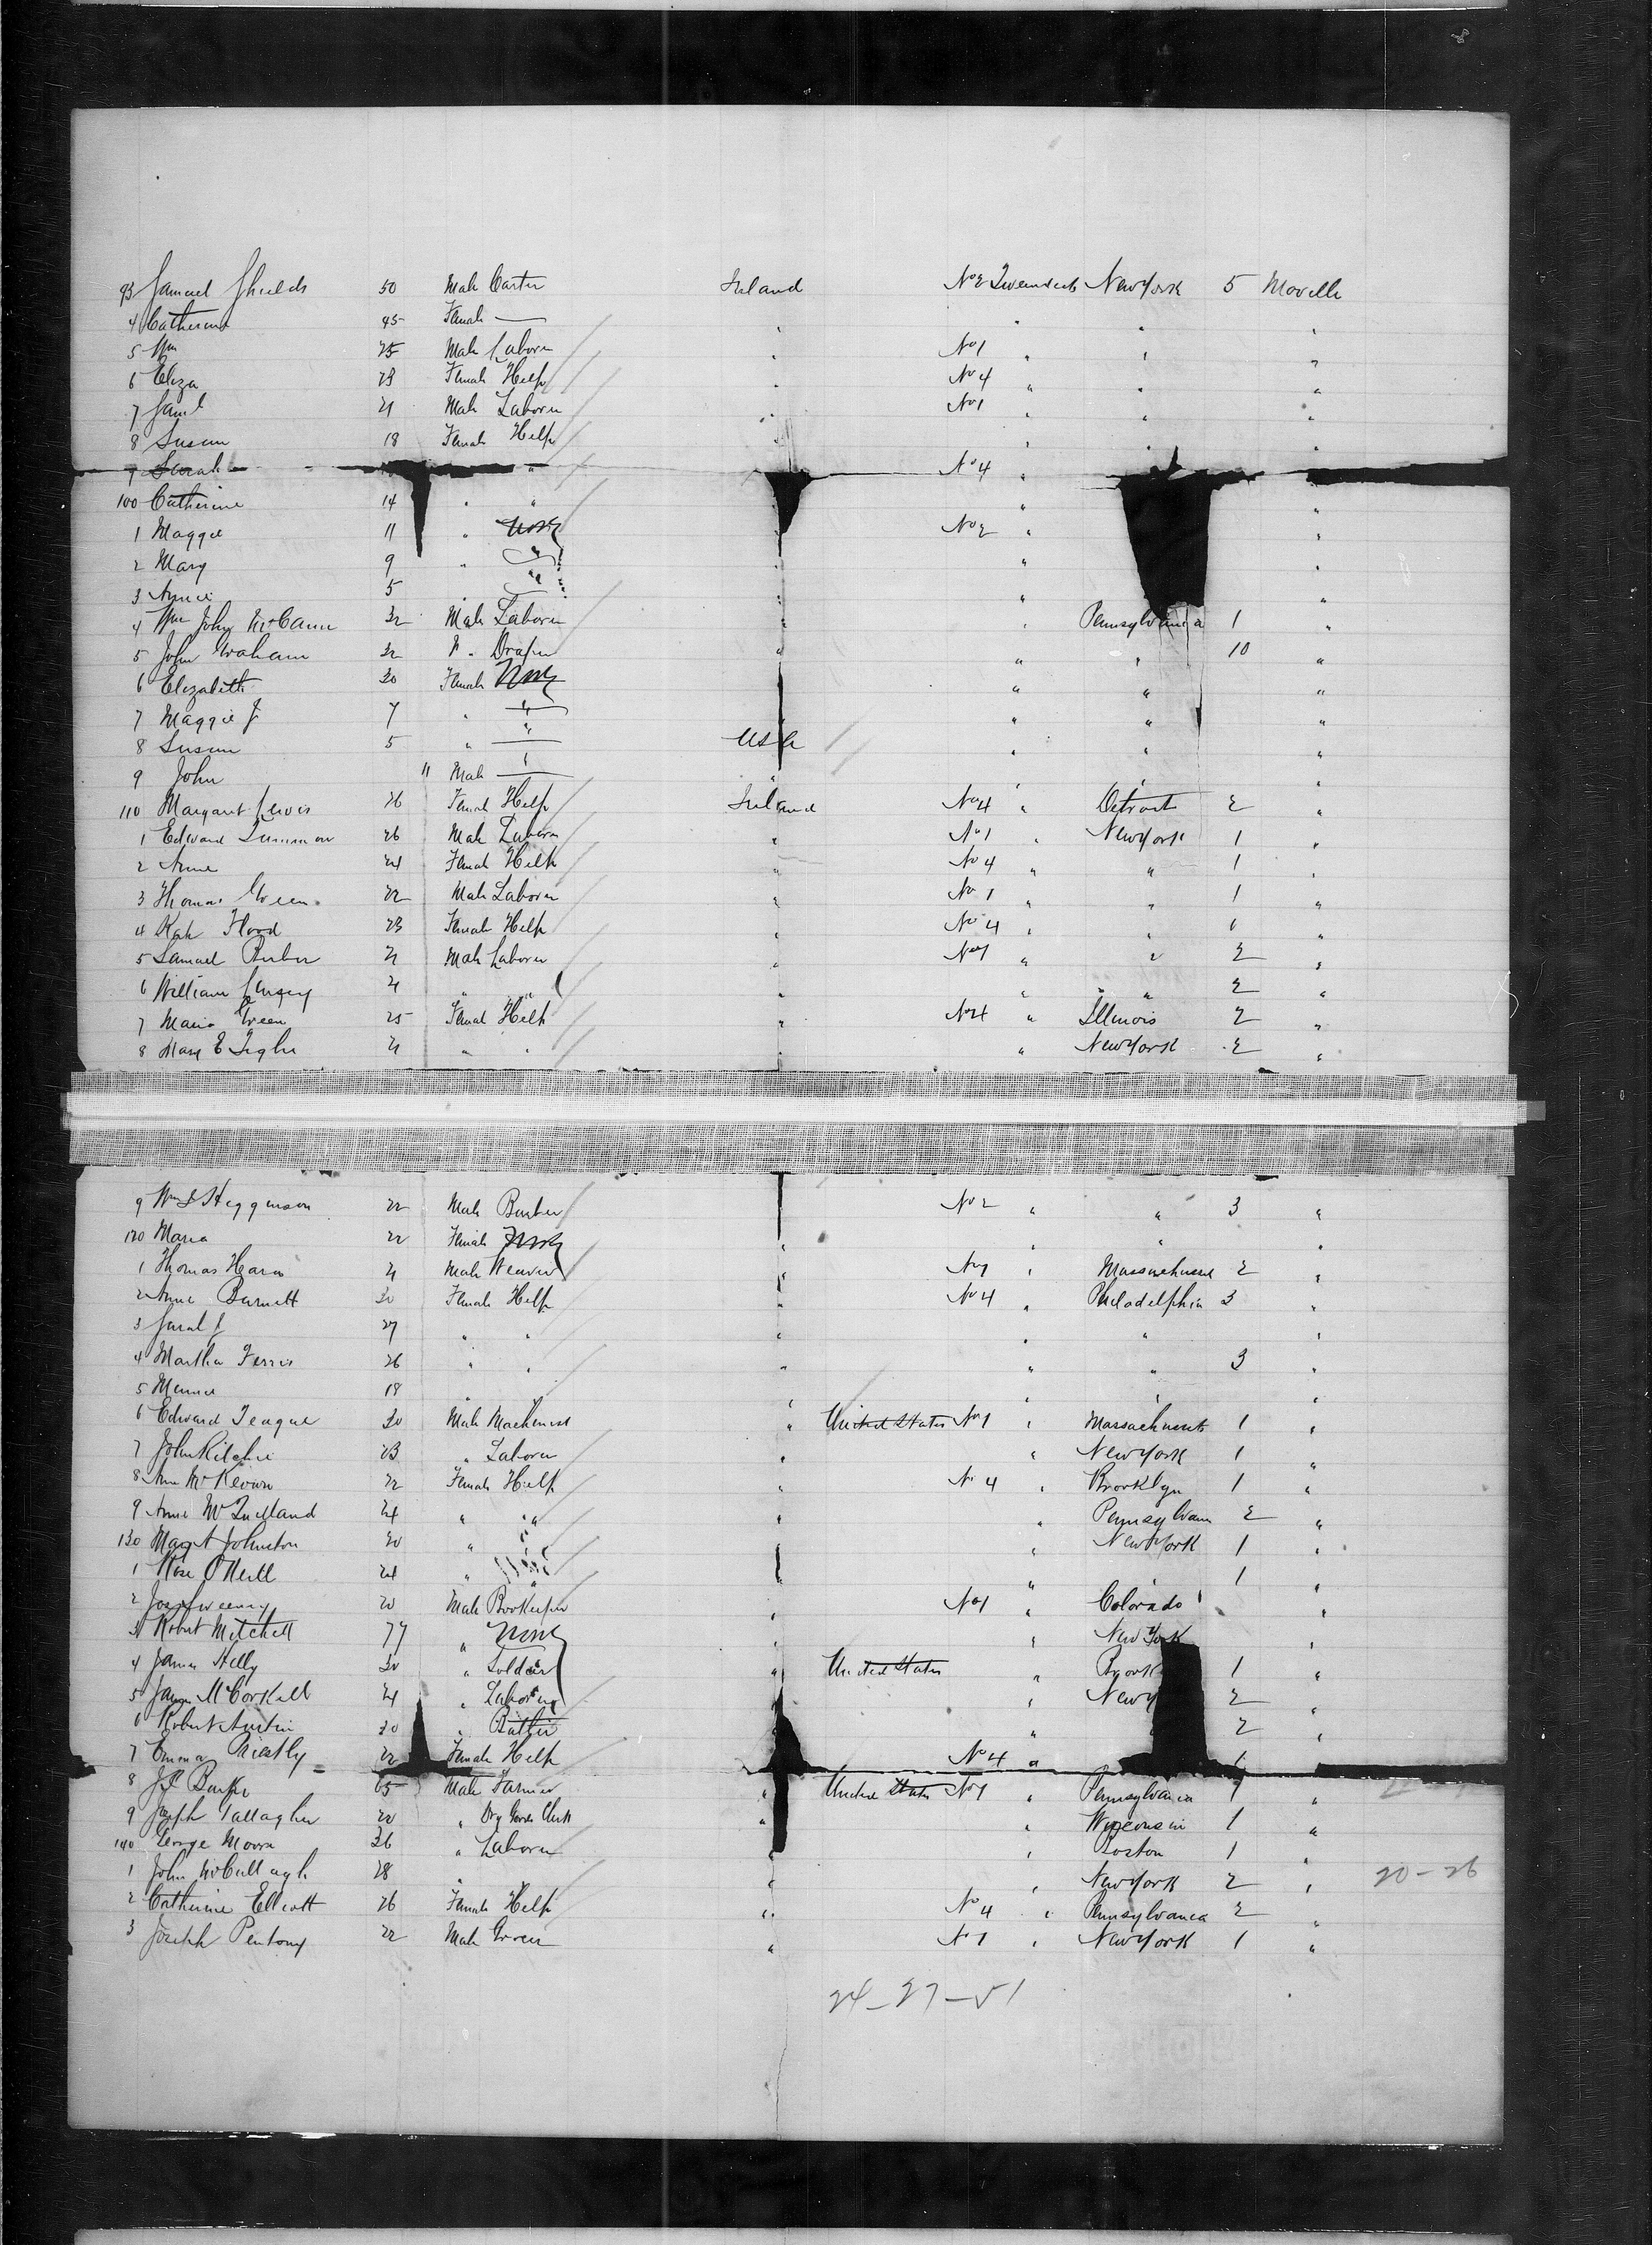 93 Samuel Shields 50 Male Carter Ireland No 2 Tweendeck New York 5 Moville
4 Catherine 45 Female — " " " "
5 Wm 25 Male Laborer " No 1 " " "
6 Eliza 23 Female Help " No 4 " " "
7 Saml 21 Male Laborer " No 1 " " "
8 Susan 18 Female Help " " "
9 Sarah " No 4 "
100 Catherine 14 " " " "
1 Maggie 11 " None No 2 " "
2 Mary 9 " " " " "
3 Annie 5 " " " " "
4 Wm John McCann 32 Male Laborer " " Pennsylvania 1 "
5 John Graham 32 " Draper " " " 10 "
6 Elizabeth 30 Female None " " "
7 Maggie J 7 " " " " "
8 Susan 5 " " USA " " "
9 John 11 Male " " " " "
110 Margaret Lewis 26 Female Help Ireland No 4 " Detroit 2 "
1 Edward 26 Male Laborer " No 1 " New York 1 "
2 Anne 24 Female Help " No 4 " " 1 "
3 Thomas Green 22 Male Laborer " No 1 " " 1 "
4 Kate Flood 23 Female Help " No 4 " " 1 "
5 Samuel Barber 21 Male Laborer " No 1 " " 2 "
6 William 21 " " " " " 2 "
7 Maria Green 25 Female Help " No 4 " Illinois 2 "
8 Mary E Tighe 21 " " " " New York 2 "
9 Wm S Higginson 22 Male No 2 " " 3 "
120 Maria 22 Female None " " " "
1 Thomas 21 Male Weaver " No 1 " 2 "
2 Anne Burnett 30 Female Help " No 4 " Philadelphia 3 "
3 Sarah J 27 " " " " " "
4 Martha Ferris 26 " " " " " 3 "
5 Minnie 18 " " " " "
6 Edward Teague 30 Male Machinist " United States No 1 " Massachusetts 1 "
7 John Ritchie 23 " Laborer " " New York 1 "
8 Ann McKeown 22 Female Help " No 4 " Brooklyn 1 "
9 Anne 24 " " " " 2 "
130 Margt Johnston 20 " " " New York 1 "
1 Rose O'Neill 24 " " " " " 1 "
2 Jos Sweeney 20 Male Bookeeper " No 1 " Colorado 1 "
3 Robert Mitchell 77 " None " " New York "
4 James Kelly 30 " Soldier " United States " Brook 1 "
5 James McCorkell 24 " Laborer " " New Y 2 "
6 Robert Austin 30 " " 2 "
7 Emma Priestly 22 Female Help No 4 " 1
8 65 Male Farmer " United States No 1 " Pennsylvania 1 "
9 Joseph Gallagher 20 " Dry Goods Clerk " " Wisconsin 1 "
140 George Moore 36 " Laborer " " Boston 1 "
1 John McCullagh 28 " " " New York 2 " 20-26
2 Catherine Elliott 26 Female Help " No 4 " Pennsylvania 2 "
3 Joseph Pentony 22 Male Grocer " No 1 " New York 1 "
24-27-51